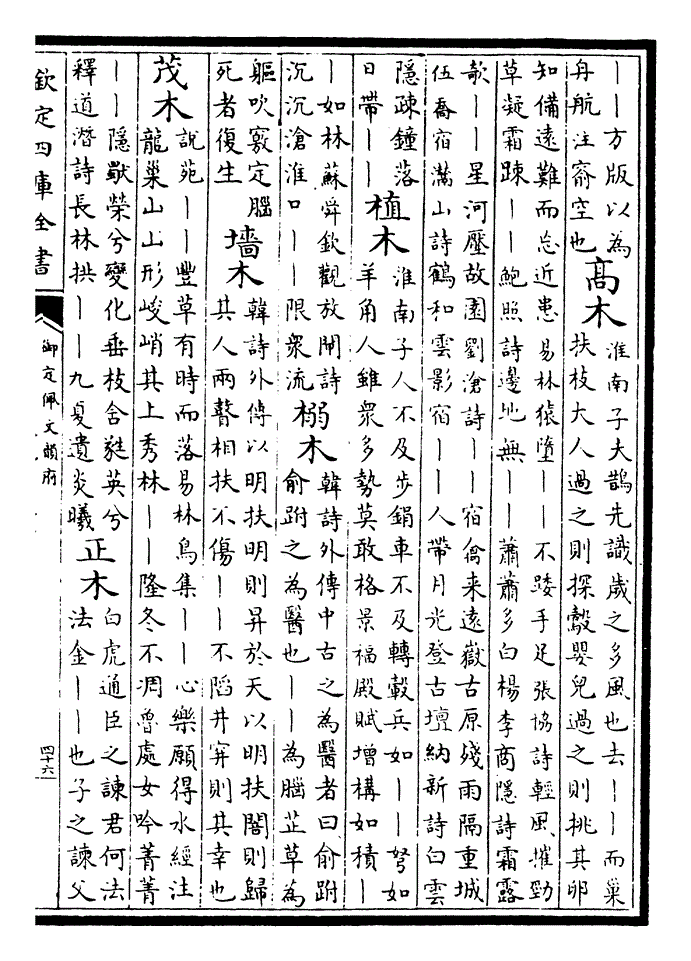 ——方版以為
舟航注窬空也
高木
淮南子夫鵲先識歲之多風也去——而巢
扶枝大人過之則探鷇嬰兒過之則挑其卵
知備遠難而忘近患易林猿墮——不踒手足張協詩輕風摧勁
草凝霜竦——鮑照詩邊地無——蕭蕭多白楊李商隱詩霜露
欹——星河壓故園劉滄詩——宿禽來遠嶽古原殘雨隔重城
伍喬宿灊山詩鶴和雲影宿——人帶月光登古壇納新詩白雲
隱疎鐘落
日帶——
植木
淮南子人不及步鋗車不及轉轂兵如——弩如
羊角人雖衆多勢莫敢格景福殿賦增構如積——
——如林蘇舜欽觀放閘詩
沉沉滄淮口——限衆流
搦木
韓詩外傳中古之為醫者曰俞跗
俞跗之為醫也——為腦芷草為
軀吹竅定腦
死者復生
墻木
韓詩外傳以明扶明則昇於天以明扶闇則歸
其人兩瞽相扶不傷——不陷井穽則其幸也
茂木
說苑——豐草有時而落易林鳥集——心樂願得水經注
龍巢山山形峻峭其上秀林——隆冬不凋魯處女吟菁菁
——隱獸榮兮變化垂枝含蕤英兮
釋道潛詩長林拱——九夏遺炎曦
正木
白虎通臣之諫君何法
法金——也子之諫父
欽定四庫全書
御定佩文韻府
四十六